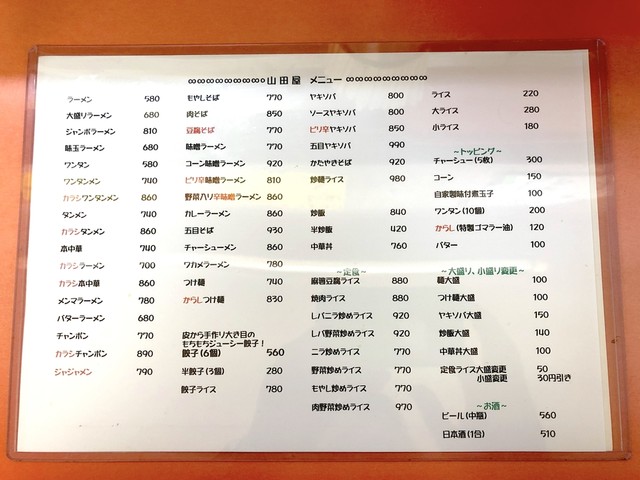 ∞∞∞∞∞∞∞∞∞o山田屋 メニュー ∞∞∞∞∞∞∞∞∞
ラーメン 580
大盛りラーメン 680
ジャンボラーメン 810
味玉ラーメン 680
ワンタン 580
ワンタンメン 740
カラシワンタンメン 860
タンメン 740
カラシタンメン 860
本中華 740
カラシラーメン 700
カラシ本中華 860
メンマラーメン 780
バターラーメン 680
チャンポン 770
カラシチャンポン 890
ジャジャメン 790
もやしそば 770
肉そば 850
豆腐そば 770
味噌ラーメン 770
コーン味噌ラーメン 920
ピリ辛味噌ラーメン 810
野菜入り辛味噌ラーメン 860
カレーラーメン 860
五目そば 930
チャーシューメン 860
ワカメラーメン 780
つけ麺 740
からしつけ麺 830
皮から手作り大き目の
もちもちジューシー餃子！
餃子(6個) 560
半餃子(3個) 280
餃子ライス 780
ヤキソバ 800
ソースヤキソバ 800
ピリ辛ヤキソバ 850
五目ヤキソバ 990
かたやきそば 920
炒麺ライス 980
炒飯 840
半炒飯 420
中華丼 760
～定食～
麻婆豆腐ライス 880
焼肉ライス 880
レバニラ炒めライス 920
レバ野菜炒めライス 920
ニラ炒めライス 770
野菜炒めライス 770
もやし炒めライス 770
肉野菜炒めライス 970
ライス 220
大ライス 280
小ライス 180
～トッピング～
チャーシュー(5枚) 300
コーン 150
自家製味付煮玉子 100
ワンタン(10個) 200
からし(特製ゴマラー油) 120
バター 100
～大盛り、小盛り変更～
麺大盛 100
つけ麺大盛 100
ヤキソバ大盛 150
炒飯大盛 140
中華丼大盛 100
定食ライス大盛変更 50
小盛変更 30円引き
～お酒～
ビール(中瓶) 560
日本酒(1合) 510